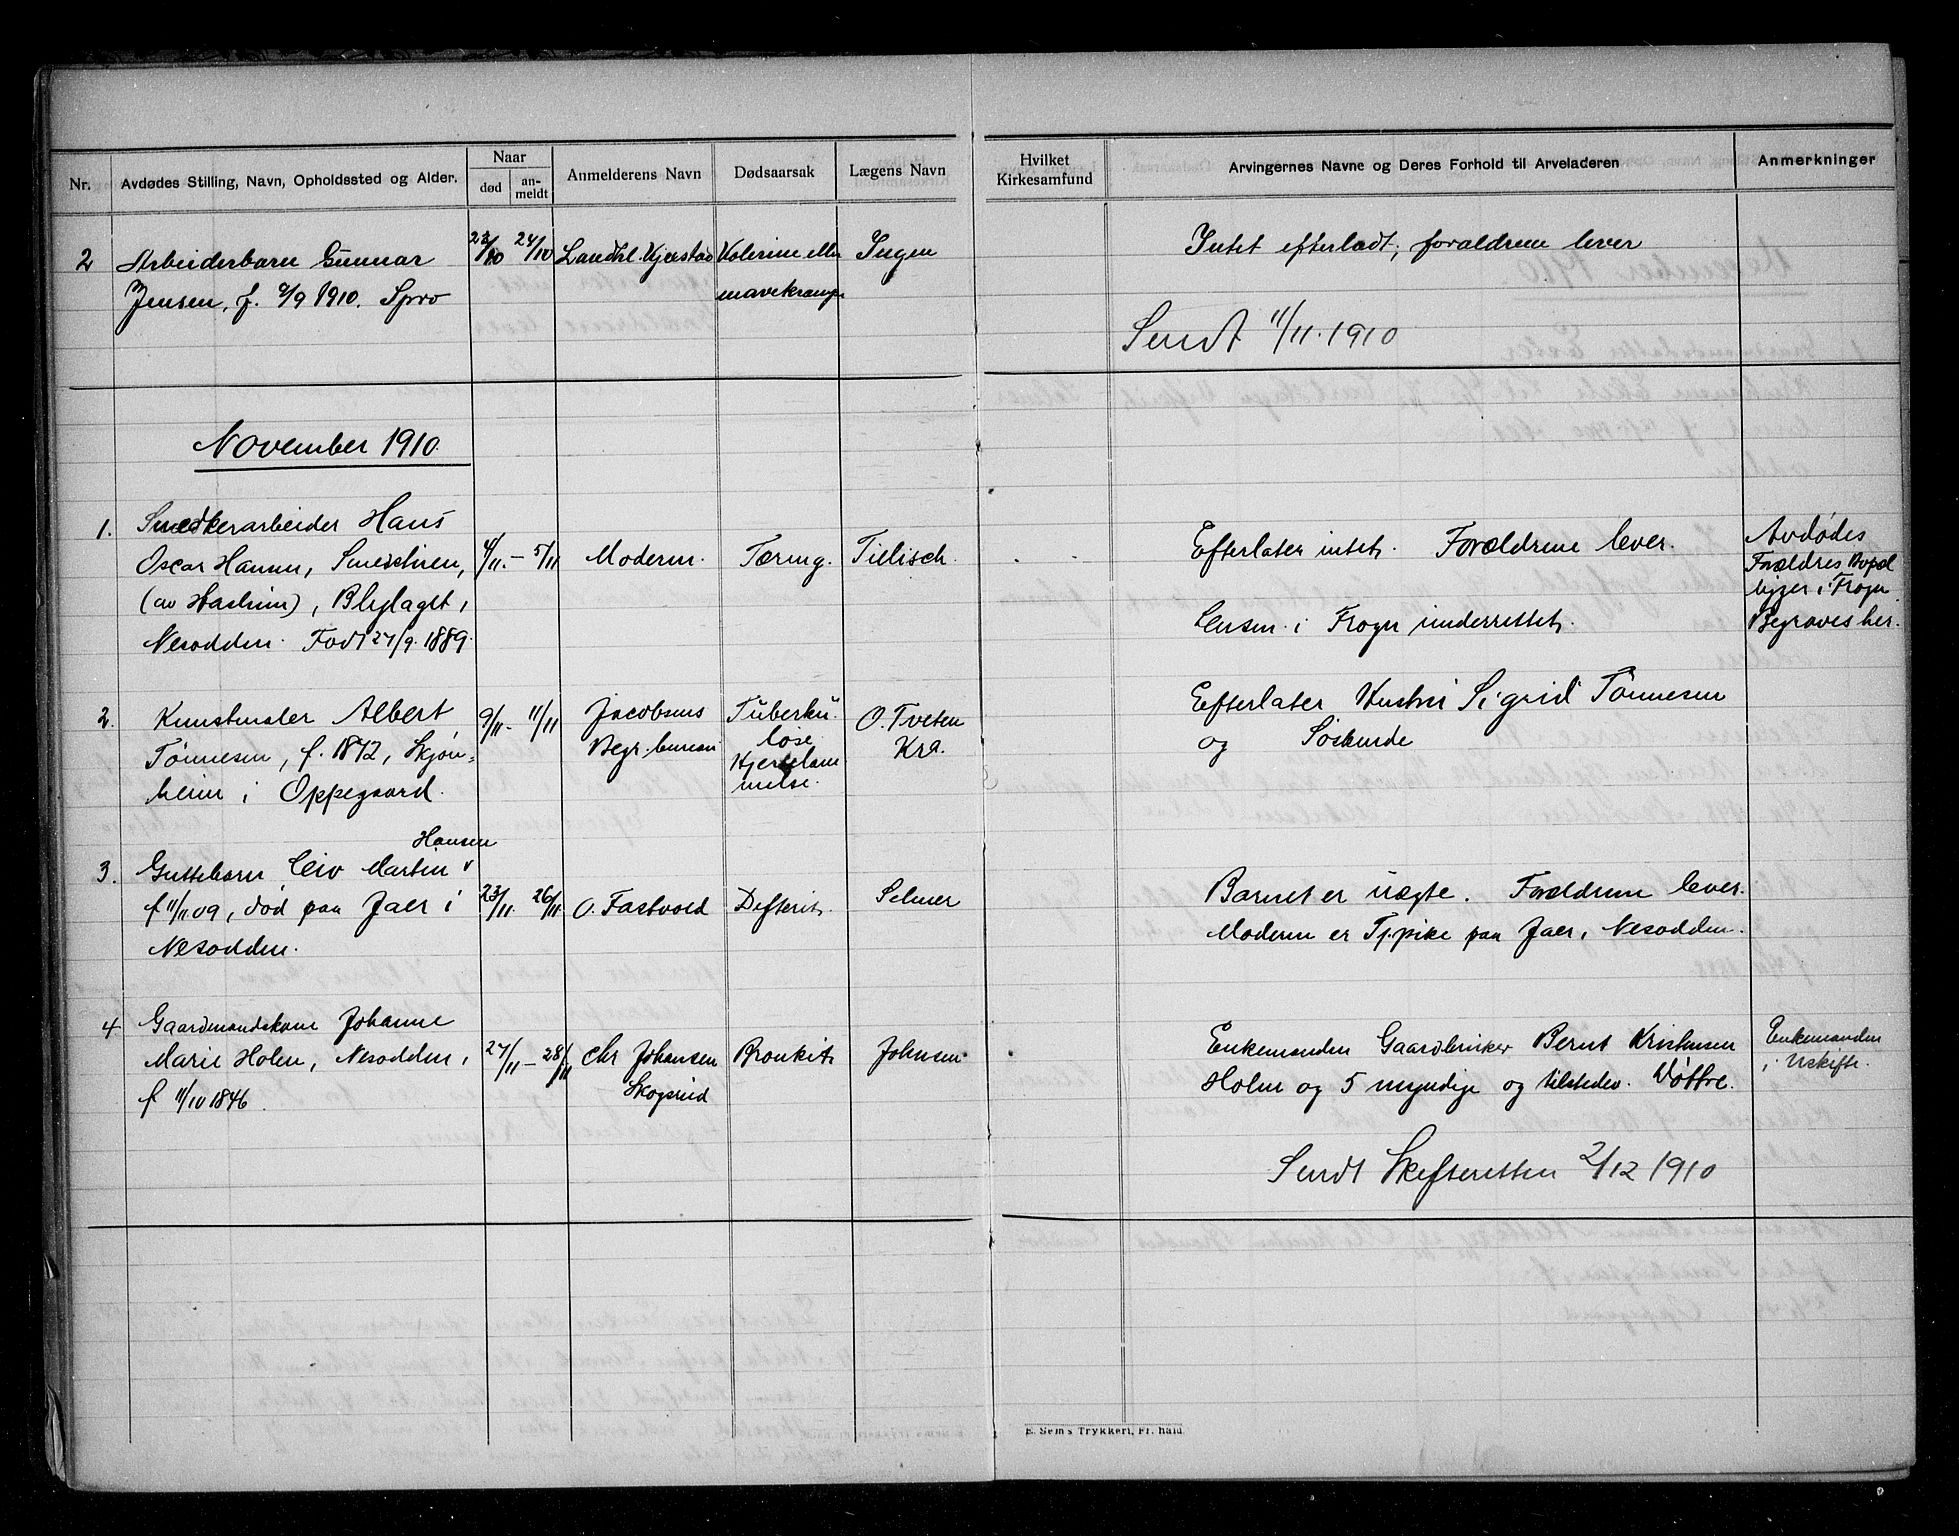 Nr.
Avdødes Stilling, Navn, Opholdssted og Alder.
Naar
død
an-
meldt
Anmelderens Navn
Dødsaarsak
Lægens Navn
Hvilket
Kirkesamfund
Arvingernes Navne og Deres Forhold til Arveladeren
Anmerkninger
2 Arbeiderbarn Gunnar 23/10 24/10 Landhl. Kjerstad Kolerine eller Ingen Intet efterladt; foraldrene lever
Jensen, f. 9/9 1910. Spro mavekrampe
Sendt 11/11. 1910
November 1910.
1. Snedkerarbeider Hans
Oscar Hansen, 4/11. - 5/11 Moderen. Tæring. Tillisch. Efterlater intet. Forældrene lever. Avdødes
Forældres Bopæl
(av Haslum), Blylaget, ligger i Frogn
Nesodden. Født 27/9. 1889. Lensm. i Frogn underrettet. Begraves her.
2. Kunstmaler Albert 9/11 - 11/11 Jacobsens Tuberku- O. Tveten Efterlater Hustru Sigrid Tønnesen
Tønnesen, f. 1872, Skjøn- Begr. bureau lose Kra. og Søskende
heim i Oppegaard. Hjertelam
melse.
Hansen
3. Guttebarn Leiv Martin v
f 11/11 09, død paa Jaer i 23/11. 26/11. O. Fastvold Difterit. Selmer Barnet er uægte. Forældrene lever.
Nesodden. Moderen er Tj.pike paa Jaer, Nesodden.
4 Gaardmandskone Johanne
Marie Holen, Nesodden, 27/11 - 28/11 Chr Johansen Bronkit. Johnsen Enkemanden Gaardbruker Bernt Kristensen Enkemanden
f 11/10 1846. Skogsrud Holen og 5 myndige og tilstedev. Døttre. i Uskifte.
Sendt Skifteretten 2/12 1910
E. Sem's Trykkeri, Fr. hald